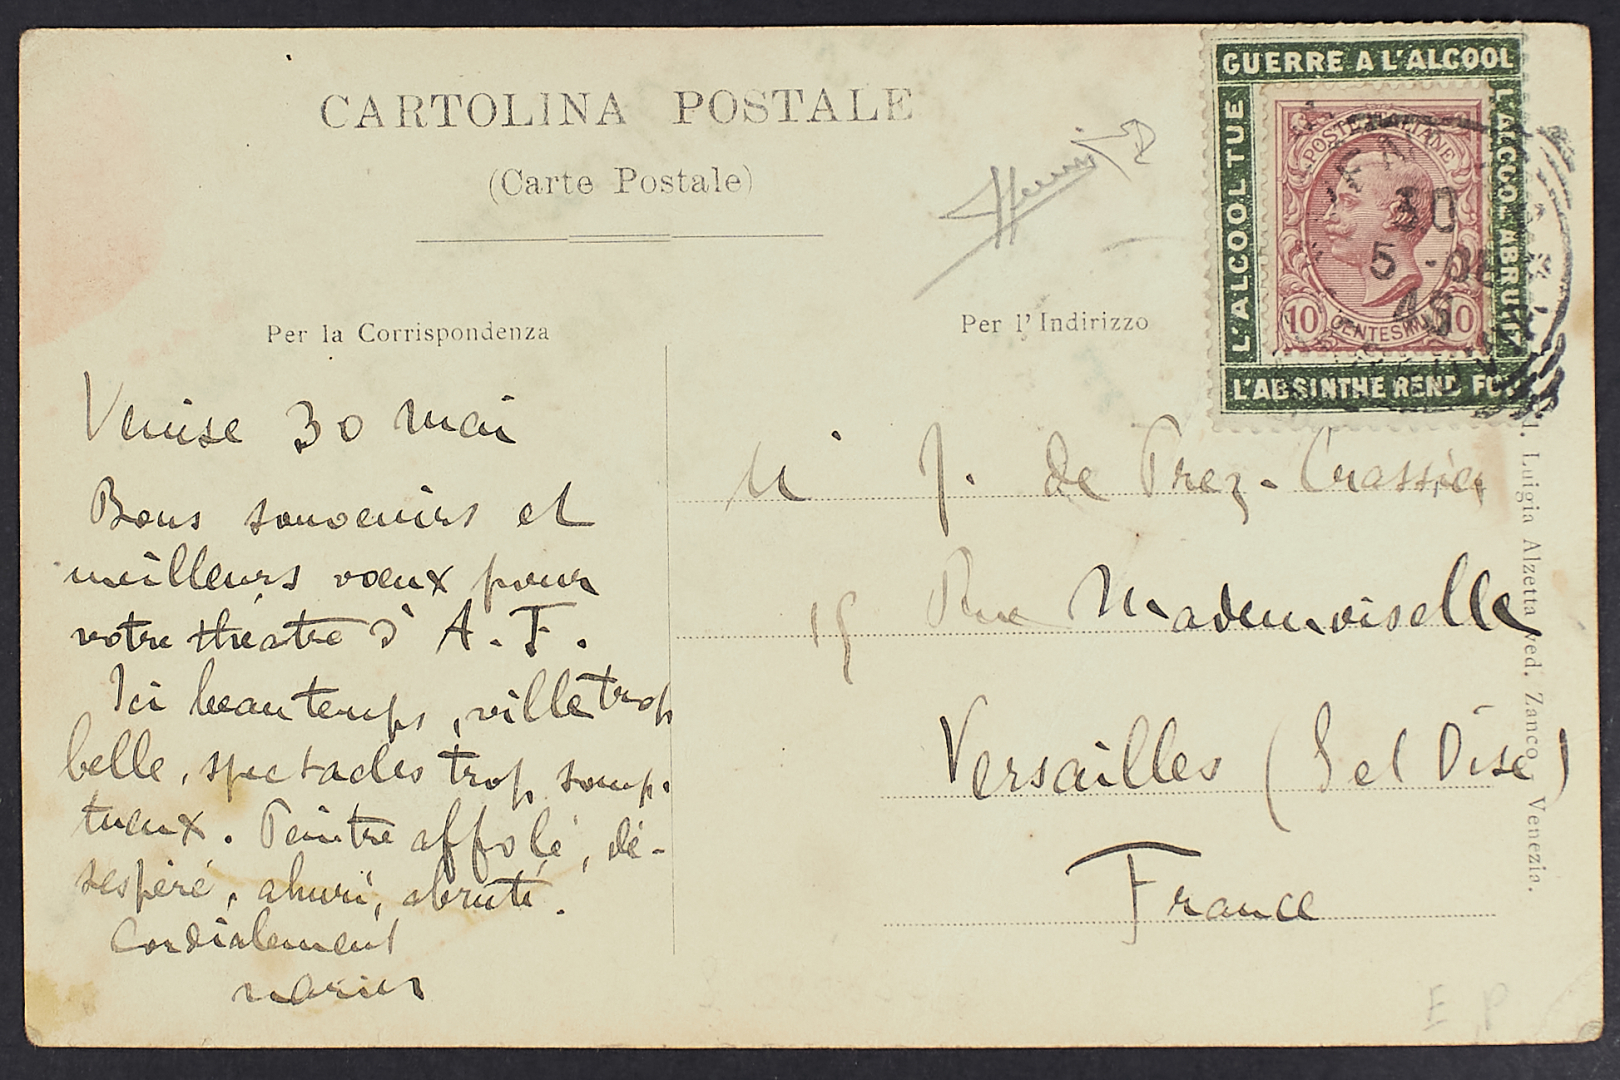 CARTOLINA POSTALE
(Carte Postale)
Per la Corrispondenza
Per l'Indirizzo
GUERRE A L'ALCOOL
L'ALCOOL TUE
L'ALCOOL ABRUTIT
L'ABSINTHE REND FOU
POSTE ITALIANE
10 CENTESIMI 10
30
5
Venise 30 mai
Bons souvenirs et
meilleurs vœux pour
votre théâtre d'A.F.
Ici beau temps, ville trop
belle, spectacles trop somp-
tueux. Peintre affolé, dé-
sespéré, ahuri, abruti.
Cordialement
M J. de Prez-Crassier
Rue Mademoiselle
Versailles (S et Oise)
France
Luigia Alzetta ved. Zanco, Venezia.
E P